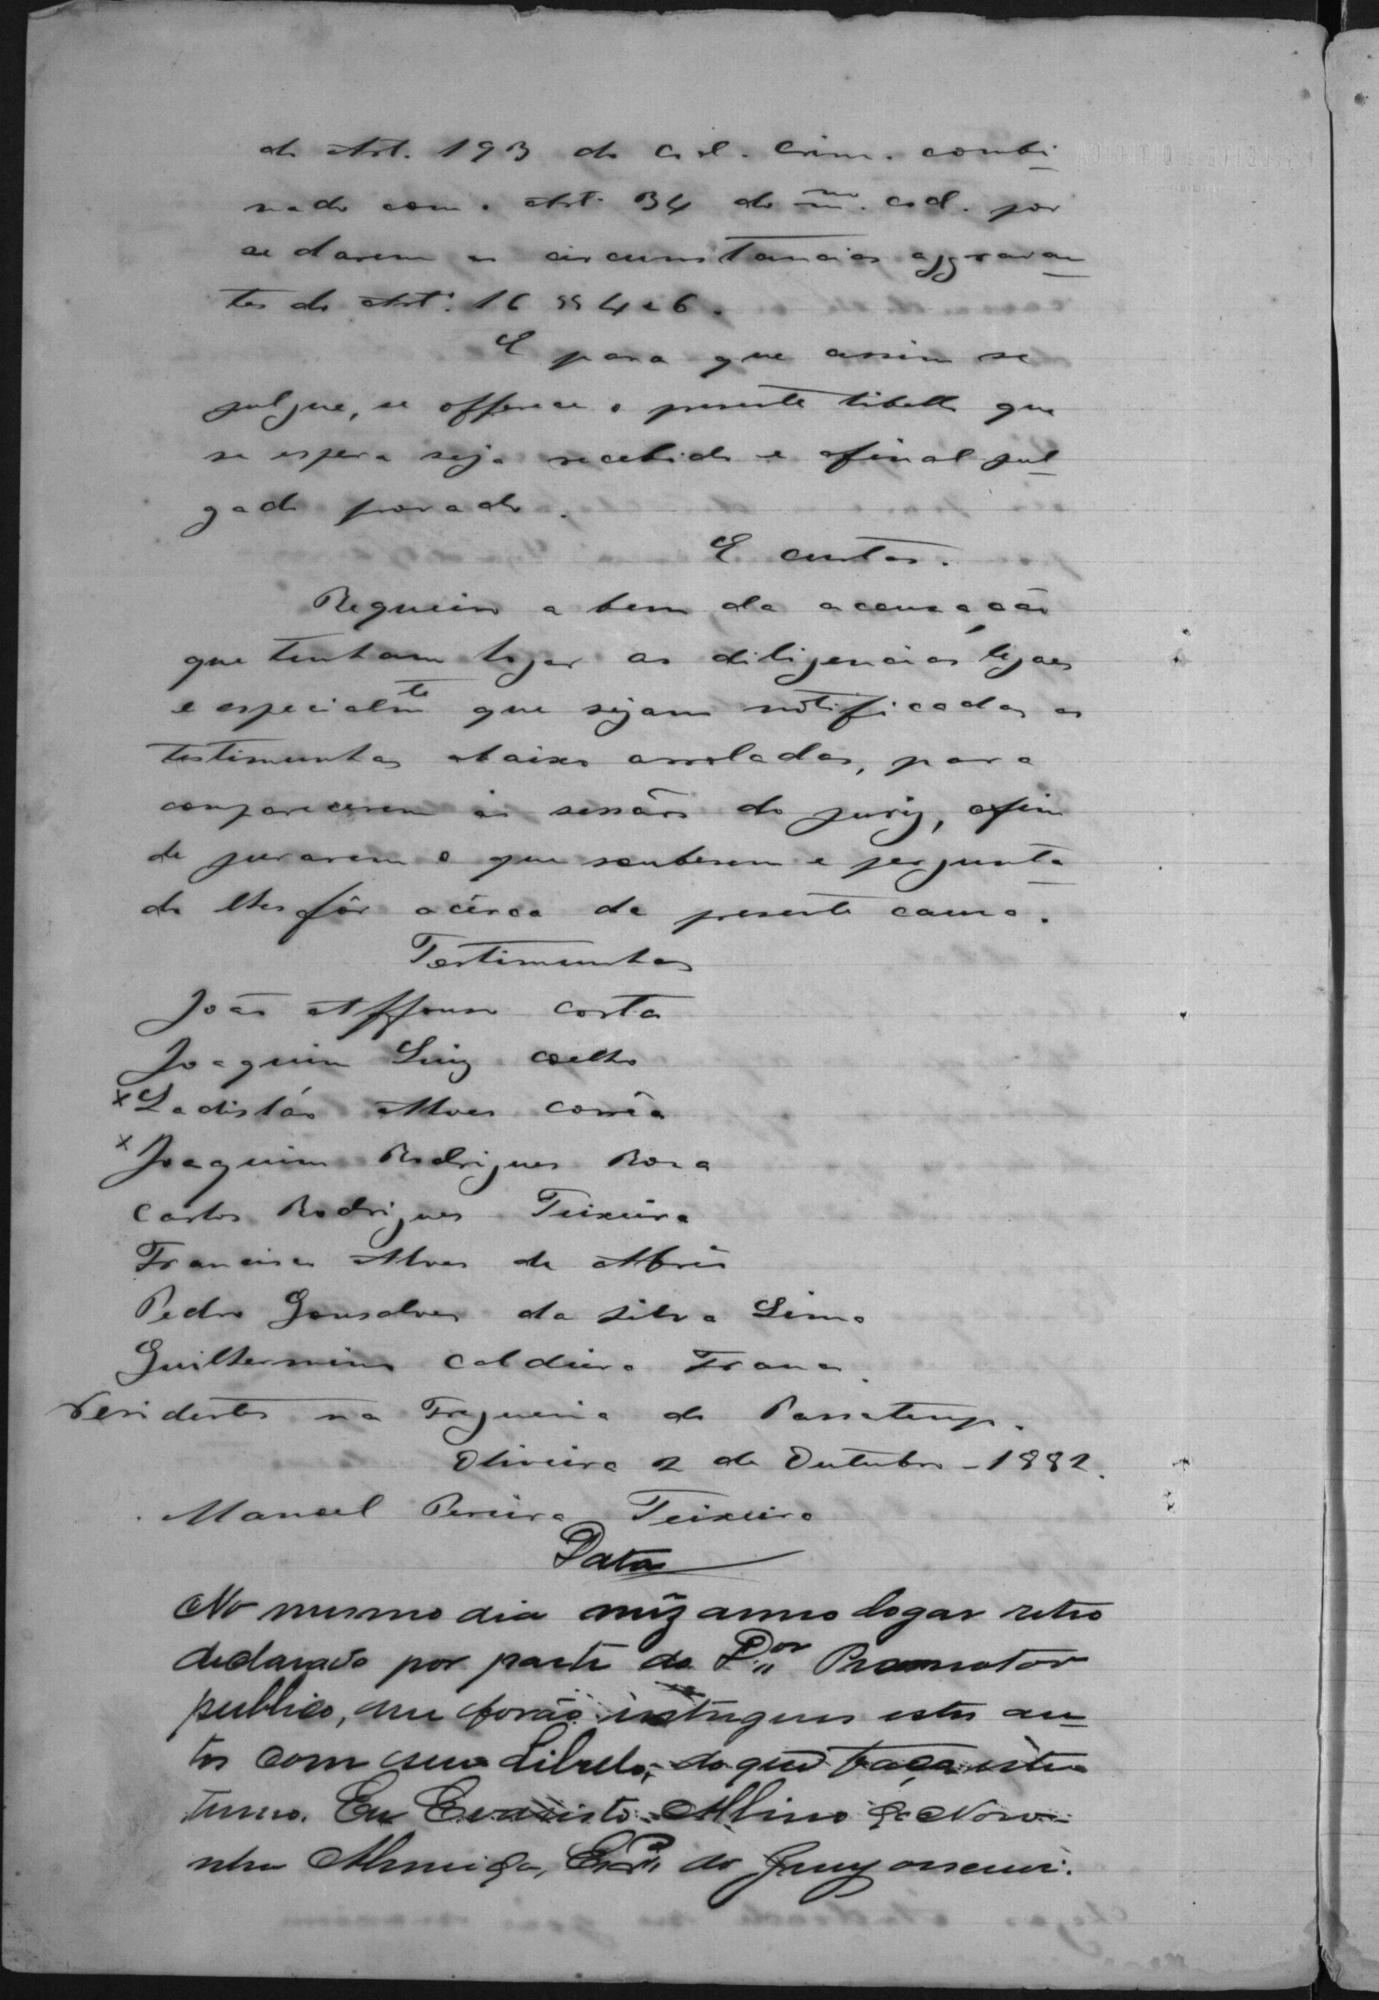 do Art. 193 do Cod. Crim. combi
nado com o Art. 34 do m.mo cod. por
se darem as circumstancias aggravan
tes do Art. 16 §§ 4 e 6.
E para que assim se
julgue, se offerece o presente libello que
se espera seja recebido e afinal jul
gado provado.
E custas.
Requeiro a bem da accusação
que tenham logar as diligencias legaes
e especialmte que sejam notificadas as
testimunhas abaixo arroladas, para
comparecerem ás sessões do jury, afim
de jurarem o que souberem e pergunta
do lhes fôr acêrca da presente causa.
Testimunhas
João Affonso Costa
Joaquim Luiz Coelho
x Ladisláo Alves Corrêa
x Joaquim Rodrigues Rosa
Carlos Rodrigues Teixeira
Francisco Alves de Abrêo
Pedro Gonsalves da Silva Lima
Guilhermino Caldeira Franco
Residentes na Freguesia do Passatempo.
Oliveira 2 de Outubro - 1882.
Manoel Pereira Teixeira
Data
No mesmo dia mêz anno logar retro
declarado por parte do Dor Promotor
publico, me forão intregues estes au
tos com seu Libello, do que faço este
termo. Eu Evaristo Albino de Noro-
nha Almeida, do Jury escrevi.